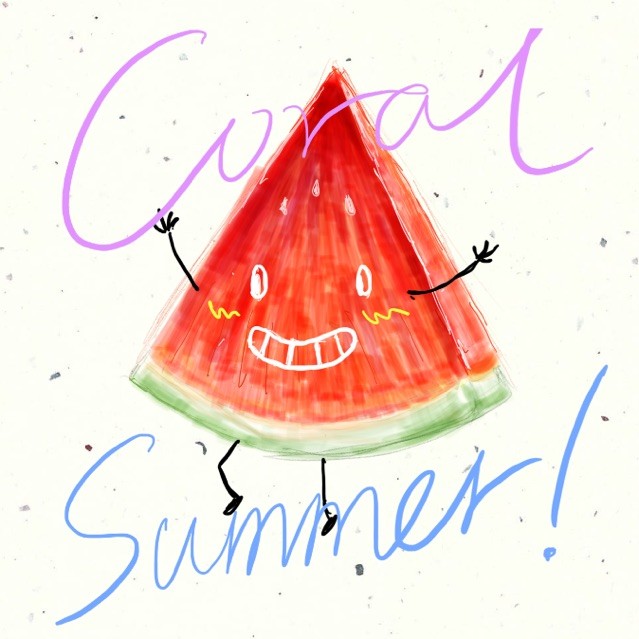 Coral
Summer!